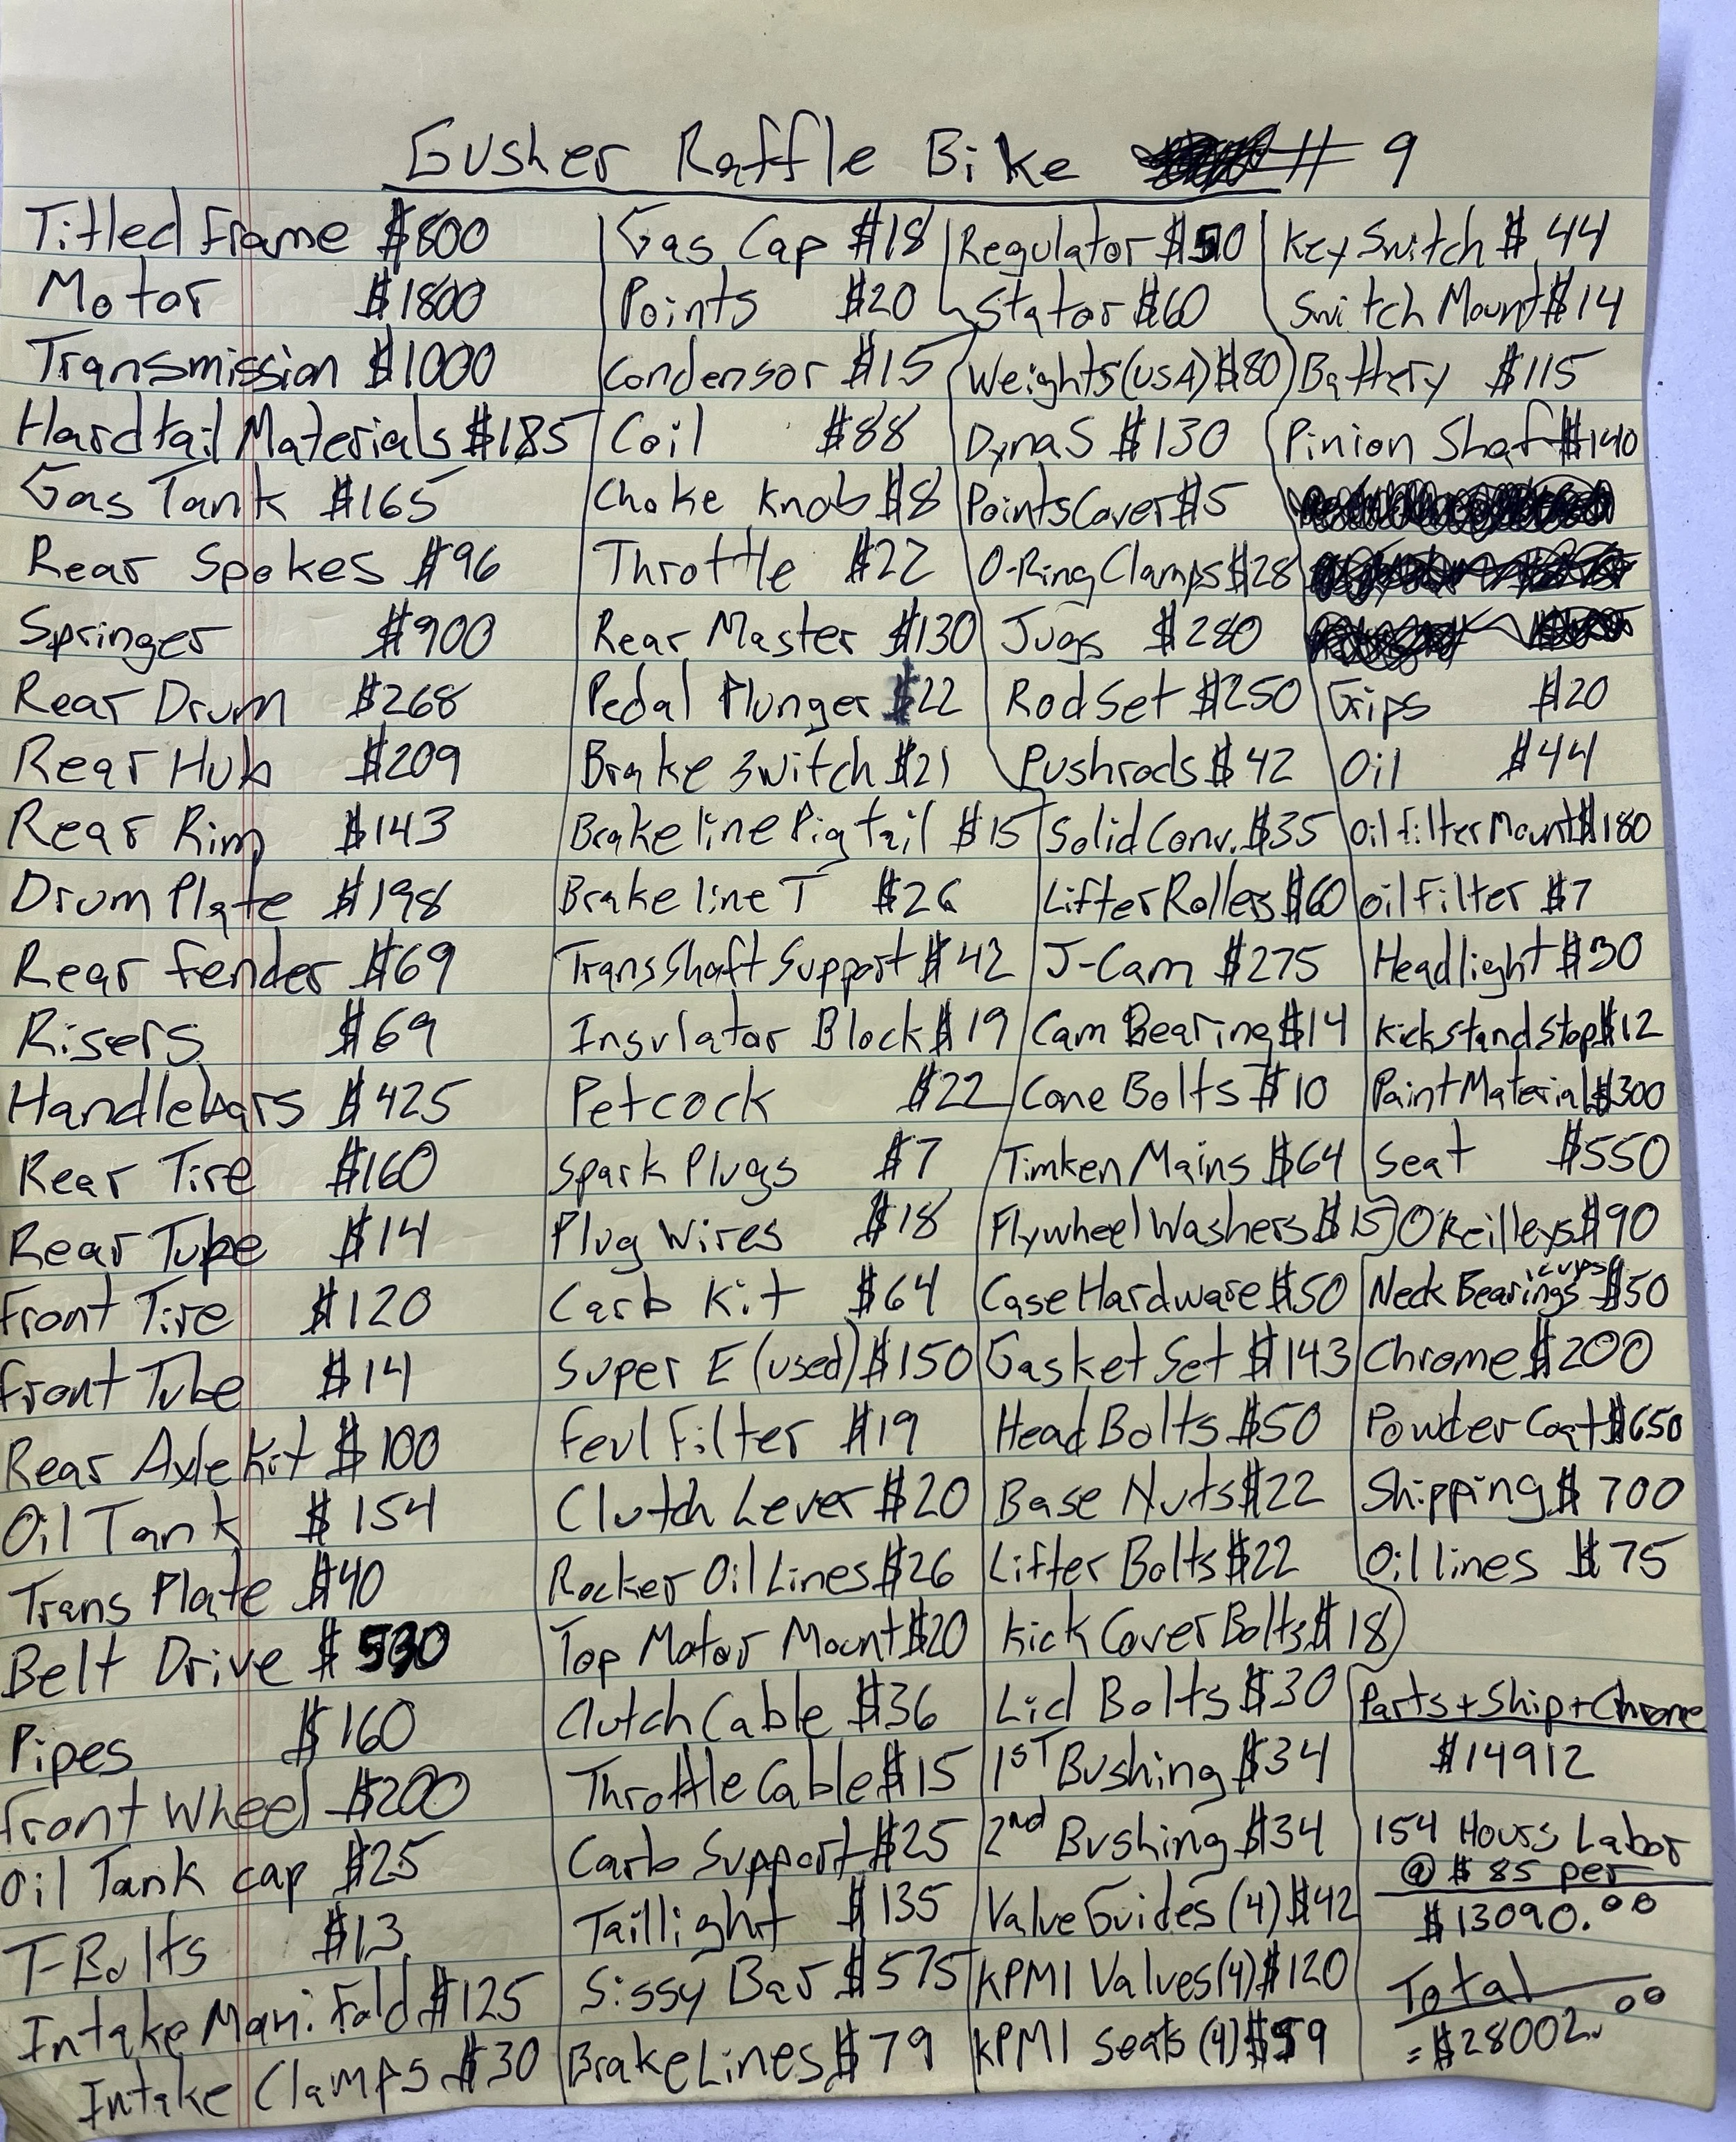 Gusher Raffle Bike # 9
Titled Frame $800
Motor $1800
Transmission $1000
Hardtail Materials $185
Gas Tank $165
Rear Spokes $96
Springer $900
Rear Drum $268
Rear Hub $209
Rear Rim $143
Drum Plate $198
Rear Fender $69
Risers $69
Handlebars $425
Rear Tire $160
Rear Tube $14
Front Tire $120
Front Tube $14
Rear Axle Kit $100
Oil Tank $154
Trans Plate $40
Belt Drive $530
Pipes $160
Front Wheel $200
Oil Tank cap $25
T-Bolts $13
Intake Manifold $125
Intake Clamps $30
Gas Cap $18
Points $20
Condensor $15
Coil $88
Choke Knob $8
Throttle $22
Rear Master $130
Pedal Plunger $22
Brake Switch $21
Brake line Pigtail $15
Brake line T $26
Trans Shaft Support $42
Insulator Block $19
Petcock $22
Spark Plugs $7
Plug Wires $18
Carb Kit $64
Super E (used) $150
Feul Filter $19
Clutch Lever $20
Rocker Oil Lines $26
Top Motor Mount $20
Clutch Cable $36
Throttle Cable $15
Carb Support $25
Taillight $135
Sissy Bar $575
Brake Lines $79
Regulator $50
Stator $60
Weights (USA) $80
Dyna S $130
Points Cover $5
O-Ring Clamps $28
Jugs $280
Rod Set $250
Pushrods $42
Solid Conv. $35
Lifter Rollers $60
J-Cam $275
Cam Bearing $14
Cone Bolts $10
Timken Mains $64
Flywheel Washers $15
Case Hardware $50
Gasket Set $143
Head Bolts $50
Base Nuts $22
Lifter Bolts $22
Kick Cover Bolts $18
Lid Bolts $30
1st Bushing $34
2nd Bushing $34
Valve Guides (4) $42
KPMI Valves (4) $120
KPMI Seats (4) $59
Key Switch $44
Switch Mount $14
Battery $115
Pinion Shaft $140
Grips $20
Oil $44
Oil Filter Mount $180
Oil Filter $7
Headlight $30
Kickstand Stop $12
Paint Material $300
Seat $550
O'Reilleys $90
Neck Bearings, cups $50
Chrome $200
Powder Coat $650
Shipping $700
Oil lines $75
Parts + Ship + Chrome
$14912
154 Hours Labor
@ $85 per
$13090.00
Total
= $28002.00